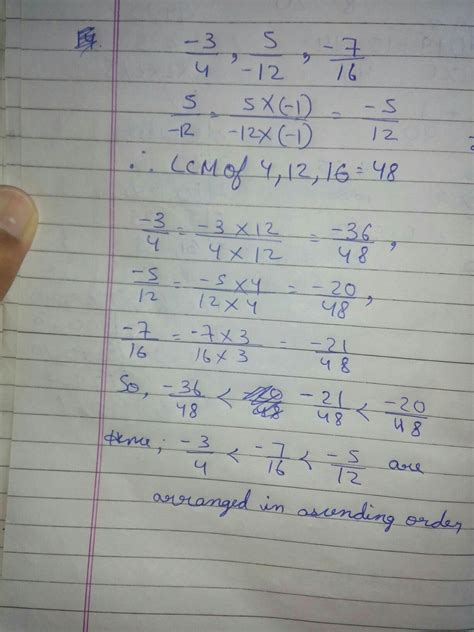 -3/4, 5/-12, -7/16
5/-12 = 5×(-1)/-12×(-1) = -5/12
∴ LCM of 4, 12, 16 = 48
-3/4 = -3×12/4×12 = -36/48,
-5/12 = -5×4/12×4 = -20/48,
-7/16 = -7×3/16×3 = -21/48
So, -36/48 < -21/48 < -20/48
Hence, -3/4 < -7/16 < -5/12 are
arranged in ascending order,